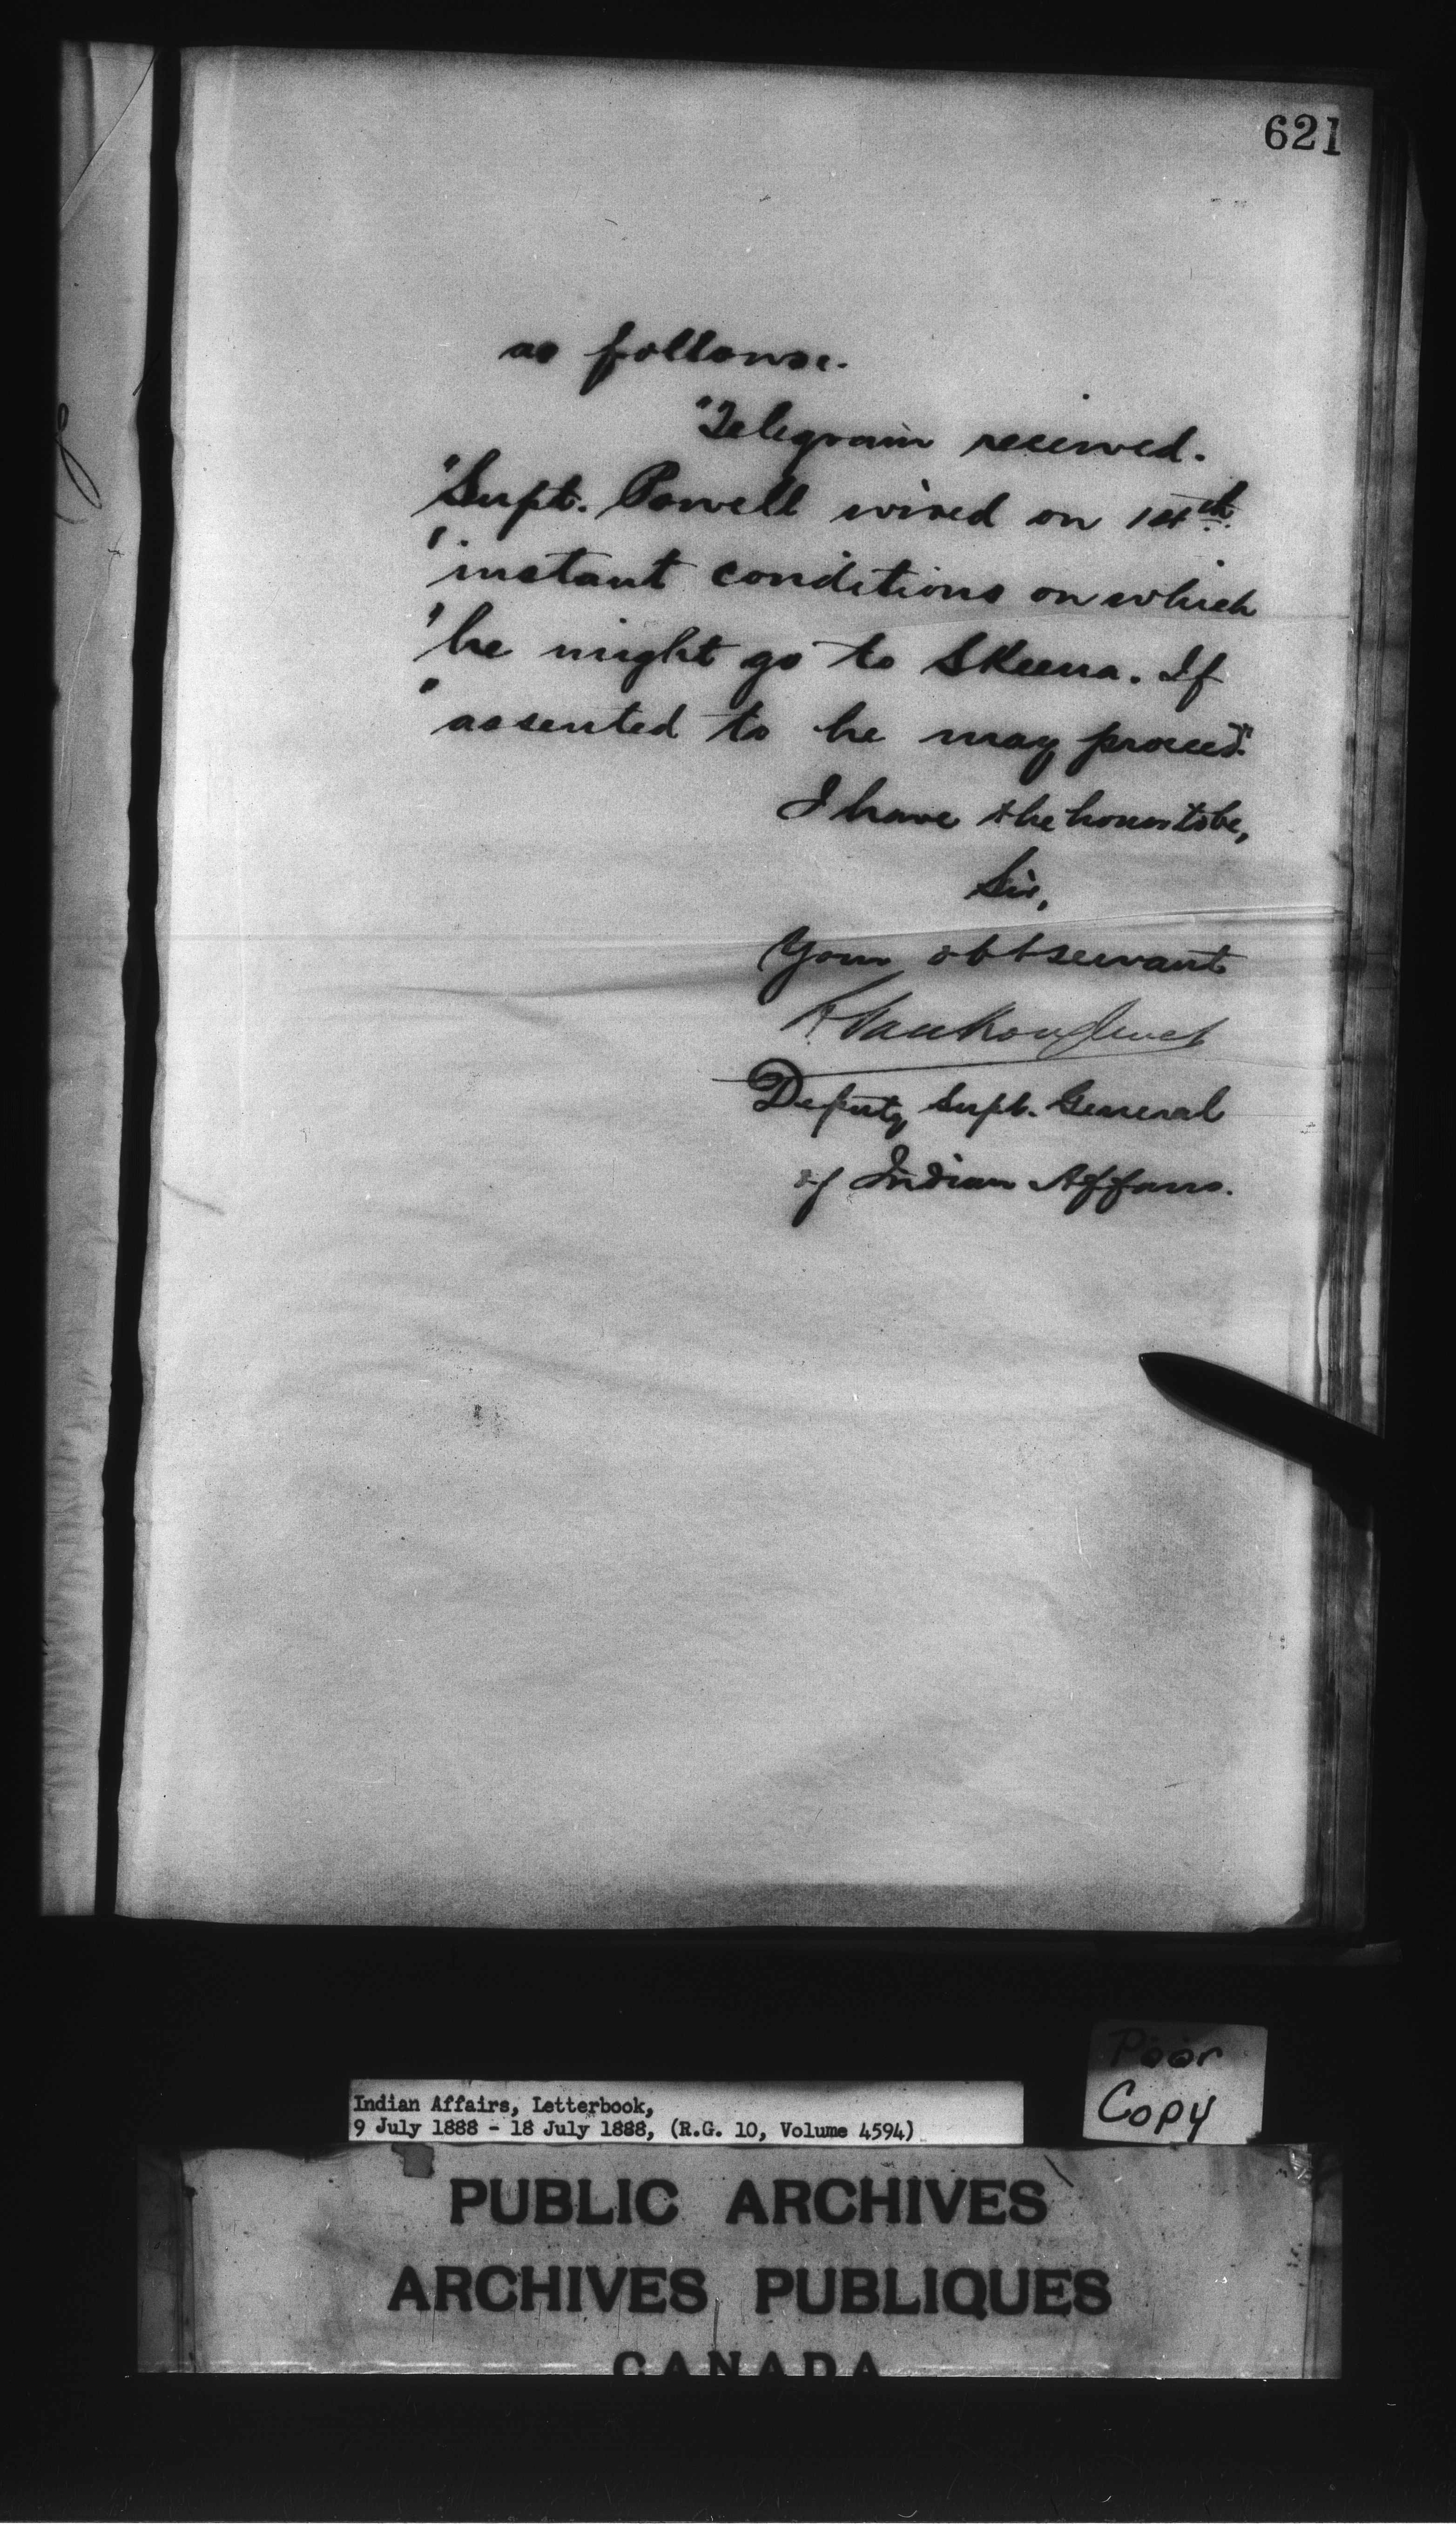 621
as follows.
"Telegram received.
"Supt. Powell wired on 14th.
"instant conditions on which
"he might go to Skeena. If
"assented to he may proceed."
I have the honor to be,
Sir,
Your obt servant
L. Vankoughnet
Deputy Supt. General
of Indian Affairs.
Poor
Copy
Indian Affairs, Letterbook,
9 July 1888 - 18 July 1888, (R.G. 10, Volume 4594)
PUBLIC ARCHIVES
ARCHIVES PUBLIQUES
CANADA